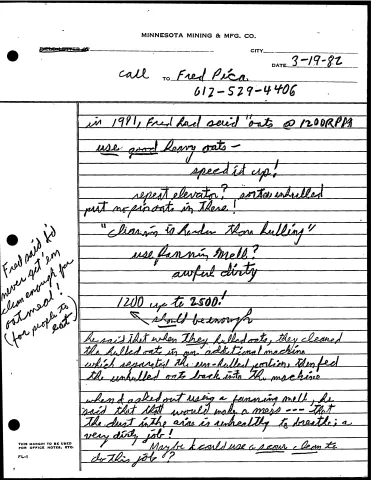 MINNESOTA MINING & MFG. CO.
CITY
DATE 3-19-82
call TO Fred Pica
612-529-4406
in 1981, Fred had said "oats @ 1200 RPM
use good heavy oats -
speed it up!
repeat elevator? sorta unhulled
put no pinoats in there!
"cleaning is harder than hulling"
use fanning mill?
awful dirty
1200 up to 2500!
should be enough
Fred said he'd
never get 'em
clean enough for
oatmeal!
(for people to
eat)
he said that when they hulled oats, they cleaned
the hulled oats in an additional machine
which separated the un-hulled portion, then fed
the unhulled oats back into the machine
when I asked about using a fanning mill, he
said that that would make a mess --- that
the dust in the area is unhealthy to breathe; a
very dirty job!
Maybe I could use a scour-clean to
do this job?
THIS MARGIN TO BE USED
FOR OFFICE NOTES, ETC.
FL-1